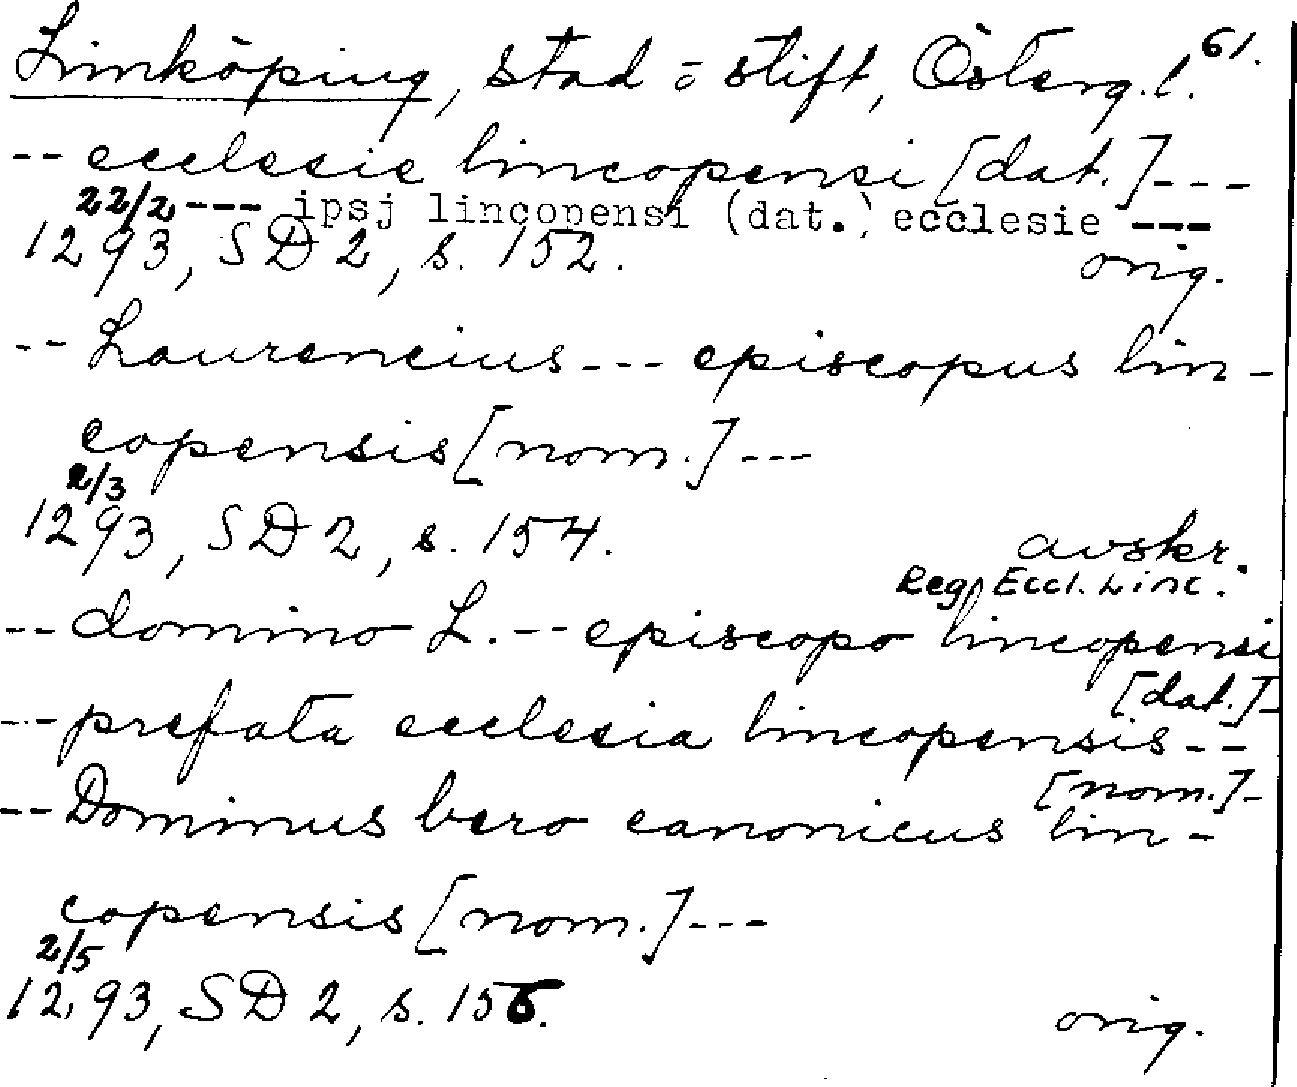 Linköping, stad o stift, Österg. l. 61.
-- ecclesie lincopensi [dat.] ---
22/2 --- ipsj lincopensi (dat.) ecclesie ---
1293, SD 2, s. 152. orig.
-- Laurencius --- episcopus lin-
copensis [nom.] ---
2/3
1293, SD 2, s. 154. avskr.
Reg. Eccl. Linc.
-- domino L. -- episcopo lincopensi
[dat.]-
-- prefata ecclesia lincopensis --
[nom.]-
-- Dominus bero canonicus lin-
copensis [nom.] ---
2/5
1293, SD 2, s. 156. orig.